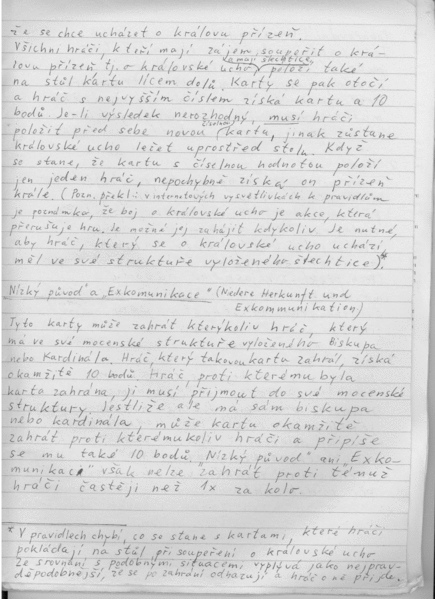 že se chce ucházet o královu přízeň.
Všichni hráči, kteří mají zájem soupeřit o krá-
a mají šlechtice
lovu přízeň tj. o královské ucho položí také
na stůl kartu lícem dolů. Karty se pak otočí
a hráč s nejvyšším číslem získá kartu a 10
bodů. Je-li výsledek nerozhodný, musí hráči
položit před sebe novou číselnou kartu, jinak zůstane
královské ucho ležet uprostřed stolu. Když
se stane, že kartu s číselnou hodnotou položí
jen jeden hráč, nepochybně získá on přízeň
krále. (Pozn. překl.: v internetových vysvětlivkách k pravidlům
je poznámka, že boj o královské ucho je akce, která
přerušuje hru. Je možné jej zahájit kdykoliv. Je nutné,
aby hráč, který se o královské ucho uchází,
měl ve své struktuře vyloženého šlechtice).*
Nízký původ a „Exkomunikace" (Niedere Herkunft und
Exkommunikation)
Tyto karty může zahrát kterýkoliv hráč, který
má ve své mocenské struktuře vyloženého Biskupa
nebo Kardinála. Hráč, který takovou kartu zahrál, získá
okamžitě 10 bodů. Hráč, proti kterému byla
karta zahrána, ji musí přijmout do své mocenské
struktury. Jestliže ale má sám biskupa
nebo kardinála, může kartu okamžitě
zahrát proti kterémukoliv hráči a připíše
se mu také 10 bodů. „Nízký původ" ani „Exko-
munikaci" však nelze zahrát proti témuž
hráči častěji než 1x za kolo.
* V pravidlech chybí, co se stane s kartami, které hráči
pokládají na stůl při soupeření o královské ucho
Ze srovnání s podobnými situacemi vyplývá jako nejprav-
děpodobnější, že se po zahrání odhazují a hráč o ně přijde.